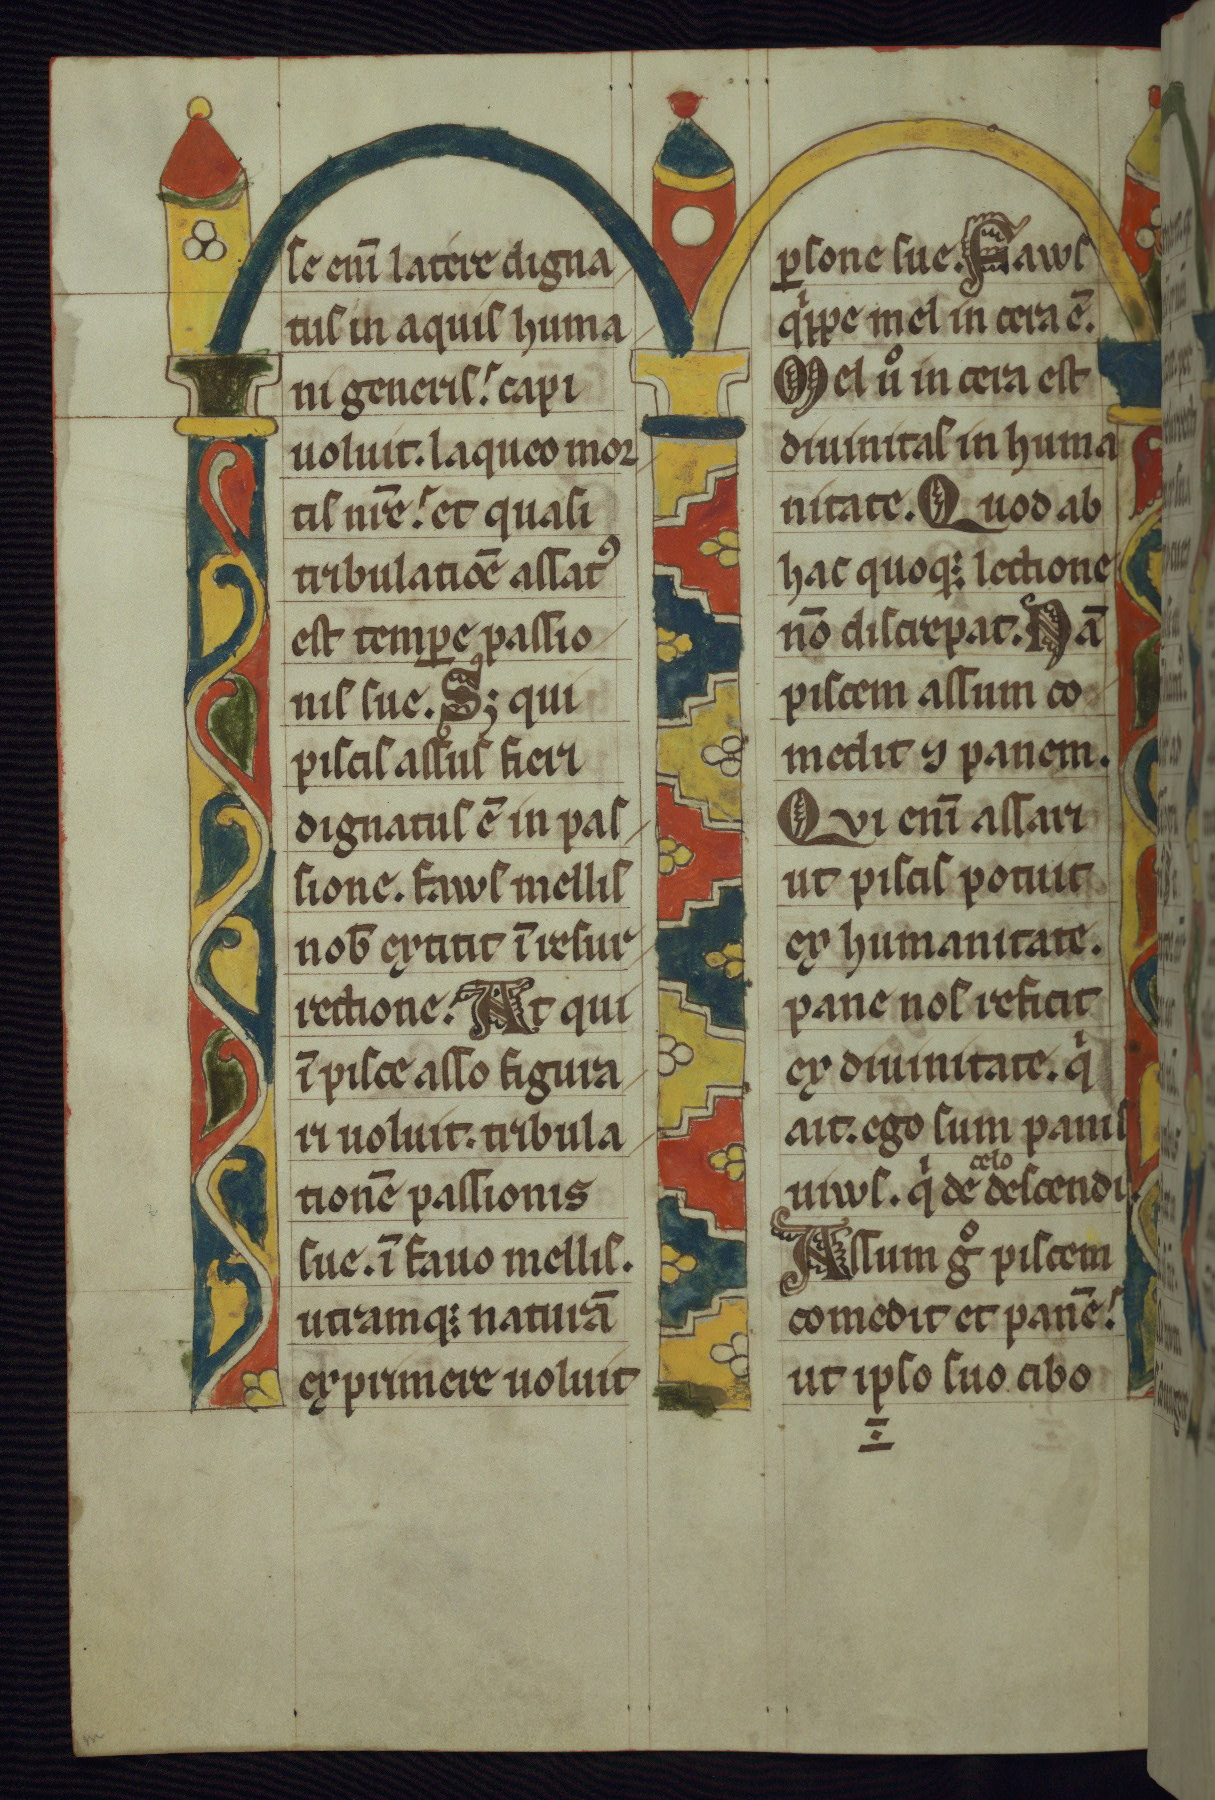 se enī latere digna
tus in aquis huma
ni generis! capi
uoluit. laqueo mor
tis nr̄e! et quasi
tribulatiōe assatꝰ
est temꝑe passio
nis sue. Sꝫ qui
piscis assus fieri
dignatus ē in pas
sione. fauus mellis
nob̄ extitit ī resur
rectione! At qui
ī pisce asso figura
ri uoluit. tribula
tionē passionis
sue. ī fauo mellis.
utramqꝫ naturā
exprimere uoluit
ꝑsone sue. Fauus
qͥppe mel in cera ē.
Mel uͦ in cera est
diuinitas in huma
nitate. Quod ab
hac quoqꝫ lectione
nō discrepat. Nā
piscem assum co
medit ⁊ panem.
Qui enī assari
ut piscis potuit
ex humanitate.
pane nos reficit
ex diuinitate. qͥ
ait. ego sum panis
uiuus. qͥ de celo descendi.
Assum gͦ piscem
comedit et panē!
ut ipso suo cibo